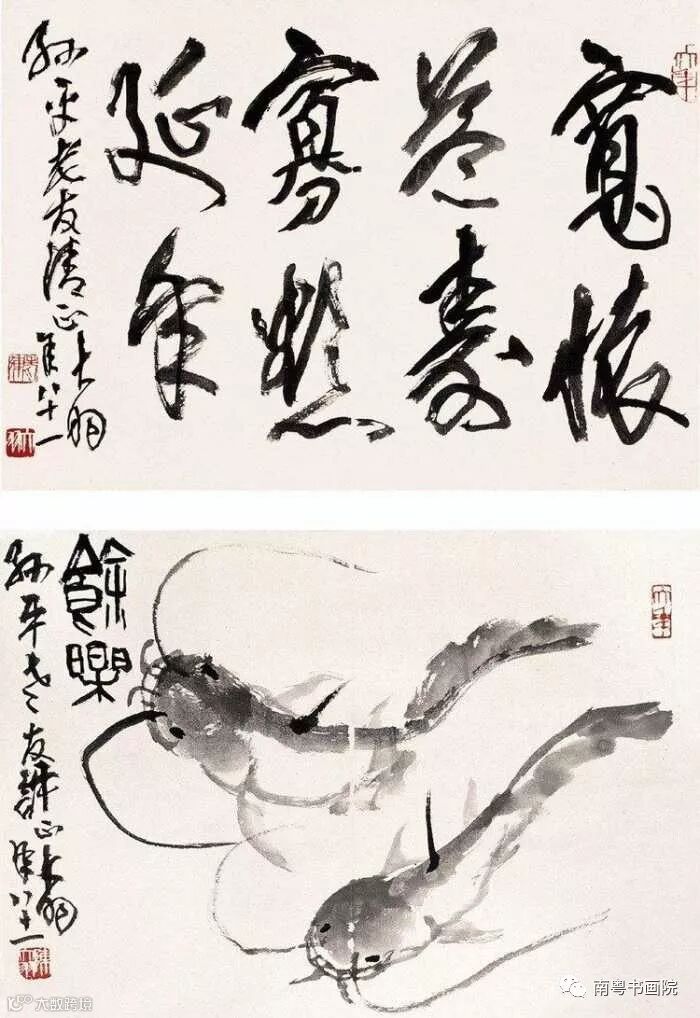 寬懷
益壽
寡慾
延年
孙平老友清正大羽
年八十一
餘
孙平老友雅正大羽
年八十一
大数跨境
南粤书画院